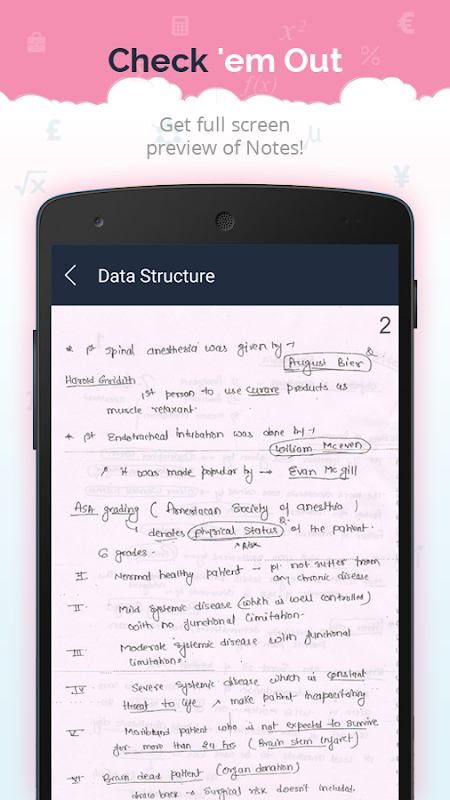 Check 'em Out
Get full screen
preview of Notes!
Data Structure
2
* 1st spinal anesthesia was given by →
August Bier
Q
Harold Griffith
1st person to use curare products as
muscle relaxant.
* 1st Endotracheal intubation was done by →
William Mceven
↗ it was made popular by → Evan Mc gill
ASA grading ( Ameriacan Society of anesthia )
denotes physical status of the patient.
Q.
Risk
6 grades -
I. Normal healthy patient → pt. not suffer from
any chronic disease
II. Mild systemic disease (which is well controlled)
with no functional limitation.
III Moderate systemic disease with functional
limitations.
IV Severe systemic disease which is constant
threat to life ↗ make patient incapacitating
V. Moribund patient who is not expected to survive
for more than 24 hrs ( Brain stem infarct)
VI Brain dead patient (organ donation)
draw back → Surgical risk doesn't included.